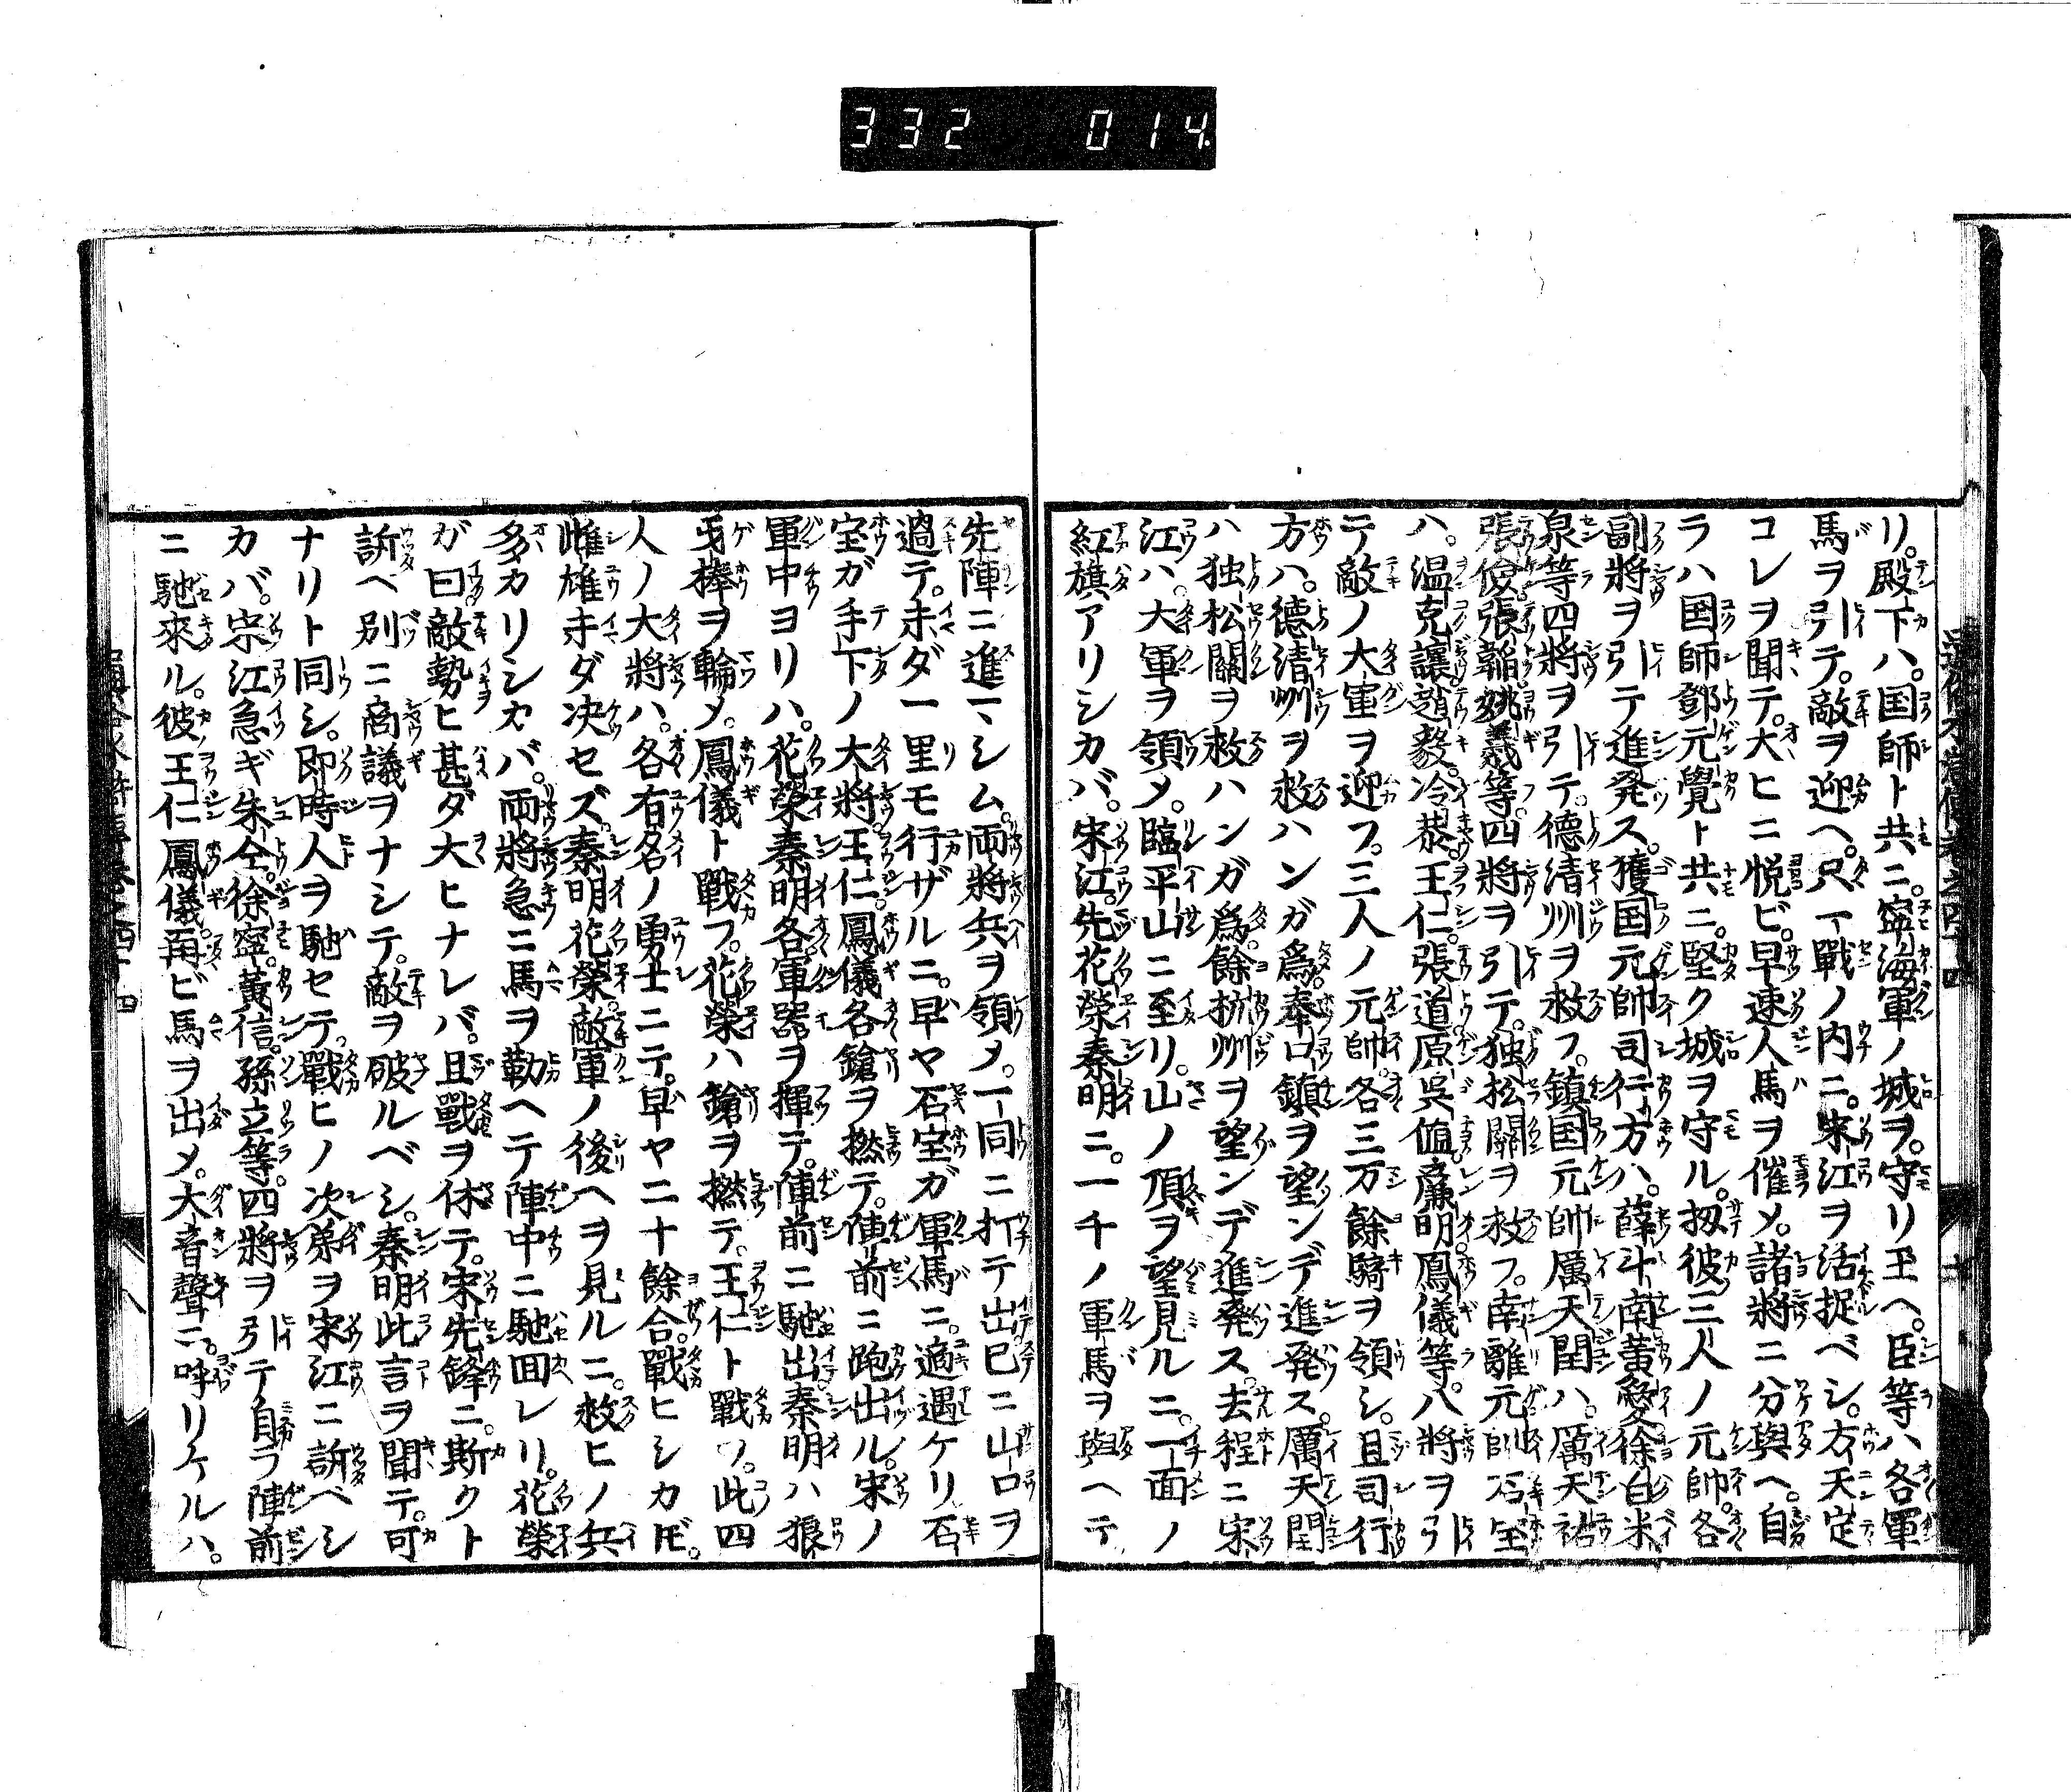 332 014
リ。殿下ハ。国師ト共ニ。寧海軍ノ城ヲ。守リ玉ヘ。臣等ハ各軍
馬ヲ引テ。敵ヲ迎ヘ。只一戰ノ内ニ。宋江ヲ活捉ベシ。方天定
コレヲ聞テ。大ヒニ悦ビ。早速人馬ヲ催メ。諸將ニ分與ヘ。自
ラハ国師鄧元覺ト共ニ。堅ク城ヲ守ル。扨彼三人ノ元帥。各
副將ヲ引テ進発ス。獲国元帥司行方ハ。薛斗南黄愛徐白米
泉等四將ヲ引テ。德清州ヲ救フ。鎮国元帥厲天閏ハ。厲天祐
張儉張韜姚義等。四將ヲ引テ。独松關ヲ救フ。南離元帥石宝
ハ。温克讓趙毅。冷恭。王仁。張道原呉値廉明鳳儀等。八將ヲ引
テ敵ノ大軍ヲ迎フ。三人ノ元帥。各三万餘騎ヲ領シ。且司行
方ハ。德清州ヲ救ハンガ爲。奉口鎮ヲ望ンデ進発ス。厲天閏
ハ独松關ヲ救ハンガ爲。餘杭州ヲ望ンデ進発ス。去程ニ宋
江ハ。大軍ヲ領メ。臨平山ニ至リ。山ノ頂ヲ望見ルニ。一面ノ
紅旗アリシカバ。宋江。先花榮秦明ニ。一千ノ軍馬ヲ與ヘテ
先陣ニ進マシム。両將兵ヲ領メ。一同ニ打テ出已ニ山口ヲ
過テ。未ダ一里モ行ザルニ。早ヤ石宝ガ軍馬ニ。適遇ケリ石
宝ガ手下ノ大將。王仁。鳳儀各鎗ヲ撚テ。陣前ニ跑出ル。宋ノ
軍中ヨリハ。花榮秦明各軍器ヲ揮テ。陣前ニ馳出秦明ハ狼
牙棒ヲ輪メ。鳳儀ト戰フ。花榮ハ鎗ヲ撚テ。王仁ト戰フ。此四
人ノ大將ハ。各有名ノ勇士ニテ。早ヤ二十餘合。戰ヒシカ𪜈。
雌雄未ダ决セズ。秦明花榮。敵軍ノ後ヘヲ見ルニ。救ヒノ兵
多カリシカバ。両將急ニ馬ヲ勒ヘテ陣中ニ馳回レリ。花榮
ガ曰敵勢ヒ甚ダ大ヒナレバ。且戰ヲ休テ。宋先鋒ニ。斯クト
訴ヘ別ニ商議ヲナシテ。敵ヲ破ルベシ。秦明此言ヲ聞テ。可
ナリト同シ。即時人ヲ馳セテ。戰ヒノ次弟ヲ宋江ニ訴ベシ
カバ。宋江急ギ朱仝。徐寧。黄信。孫立等。四將ヲ引テ自ラ陣前
ニ馳來ル。彼王仁鳳儀。再ビ馬ヲ出メ。大音聲ニ。呼リケルハ。